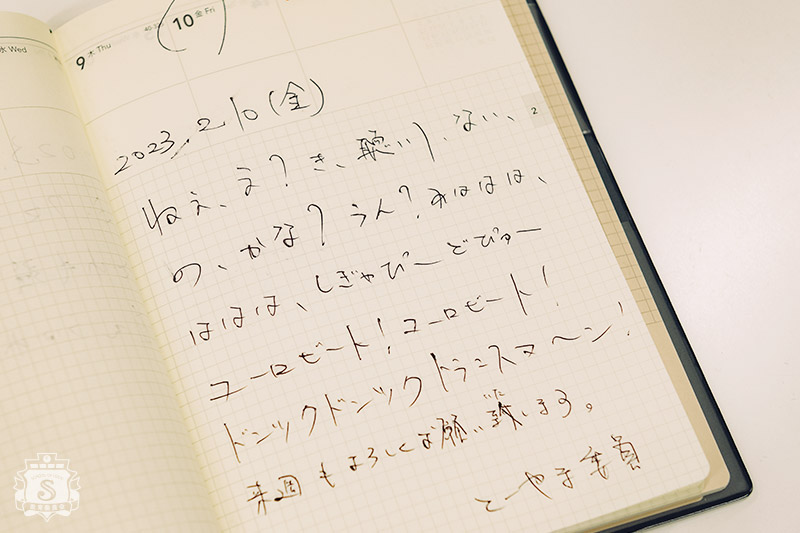 水 Wed
9 木 Thu
10 金 Fri
2
2023, 2/10 (金)
ねえ、え？き、聴いて、ない、
の、かな？うん？あははは、
ははは、しぎゃぴーどぴゅー
ユーロビート！ユーロビート！
ドンツクドンツクトランスマ〜ン！
いた
来週もよろしくお願い致します。
とーやま委員
S